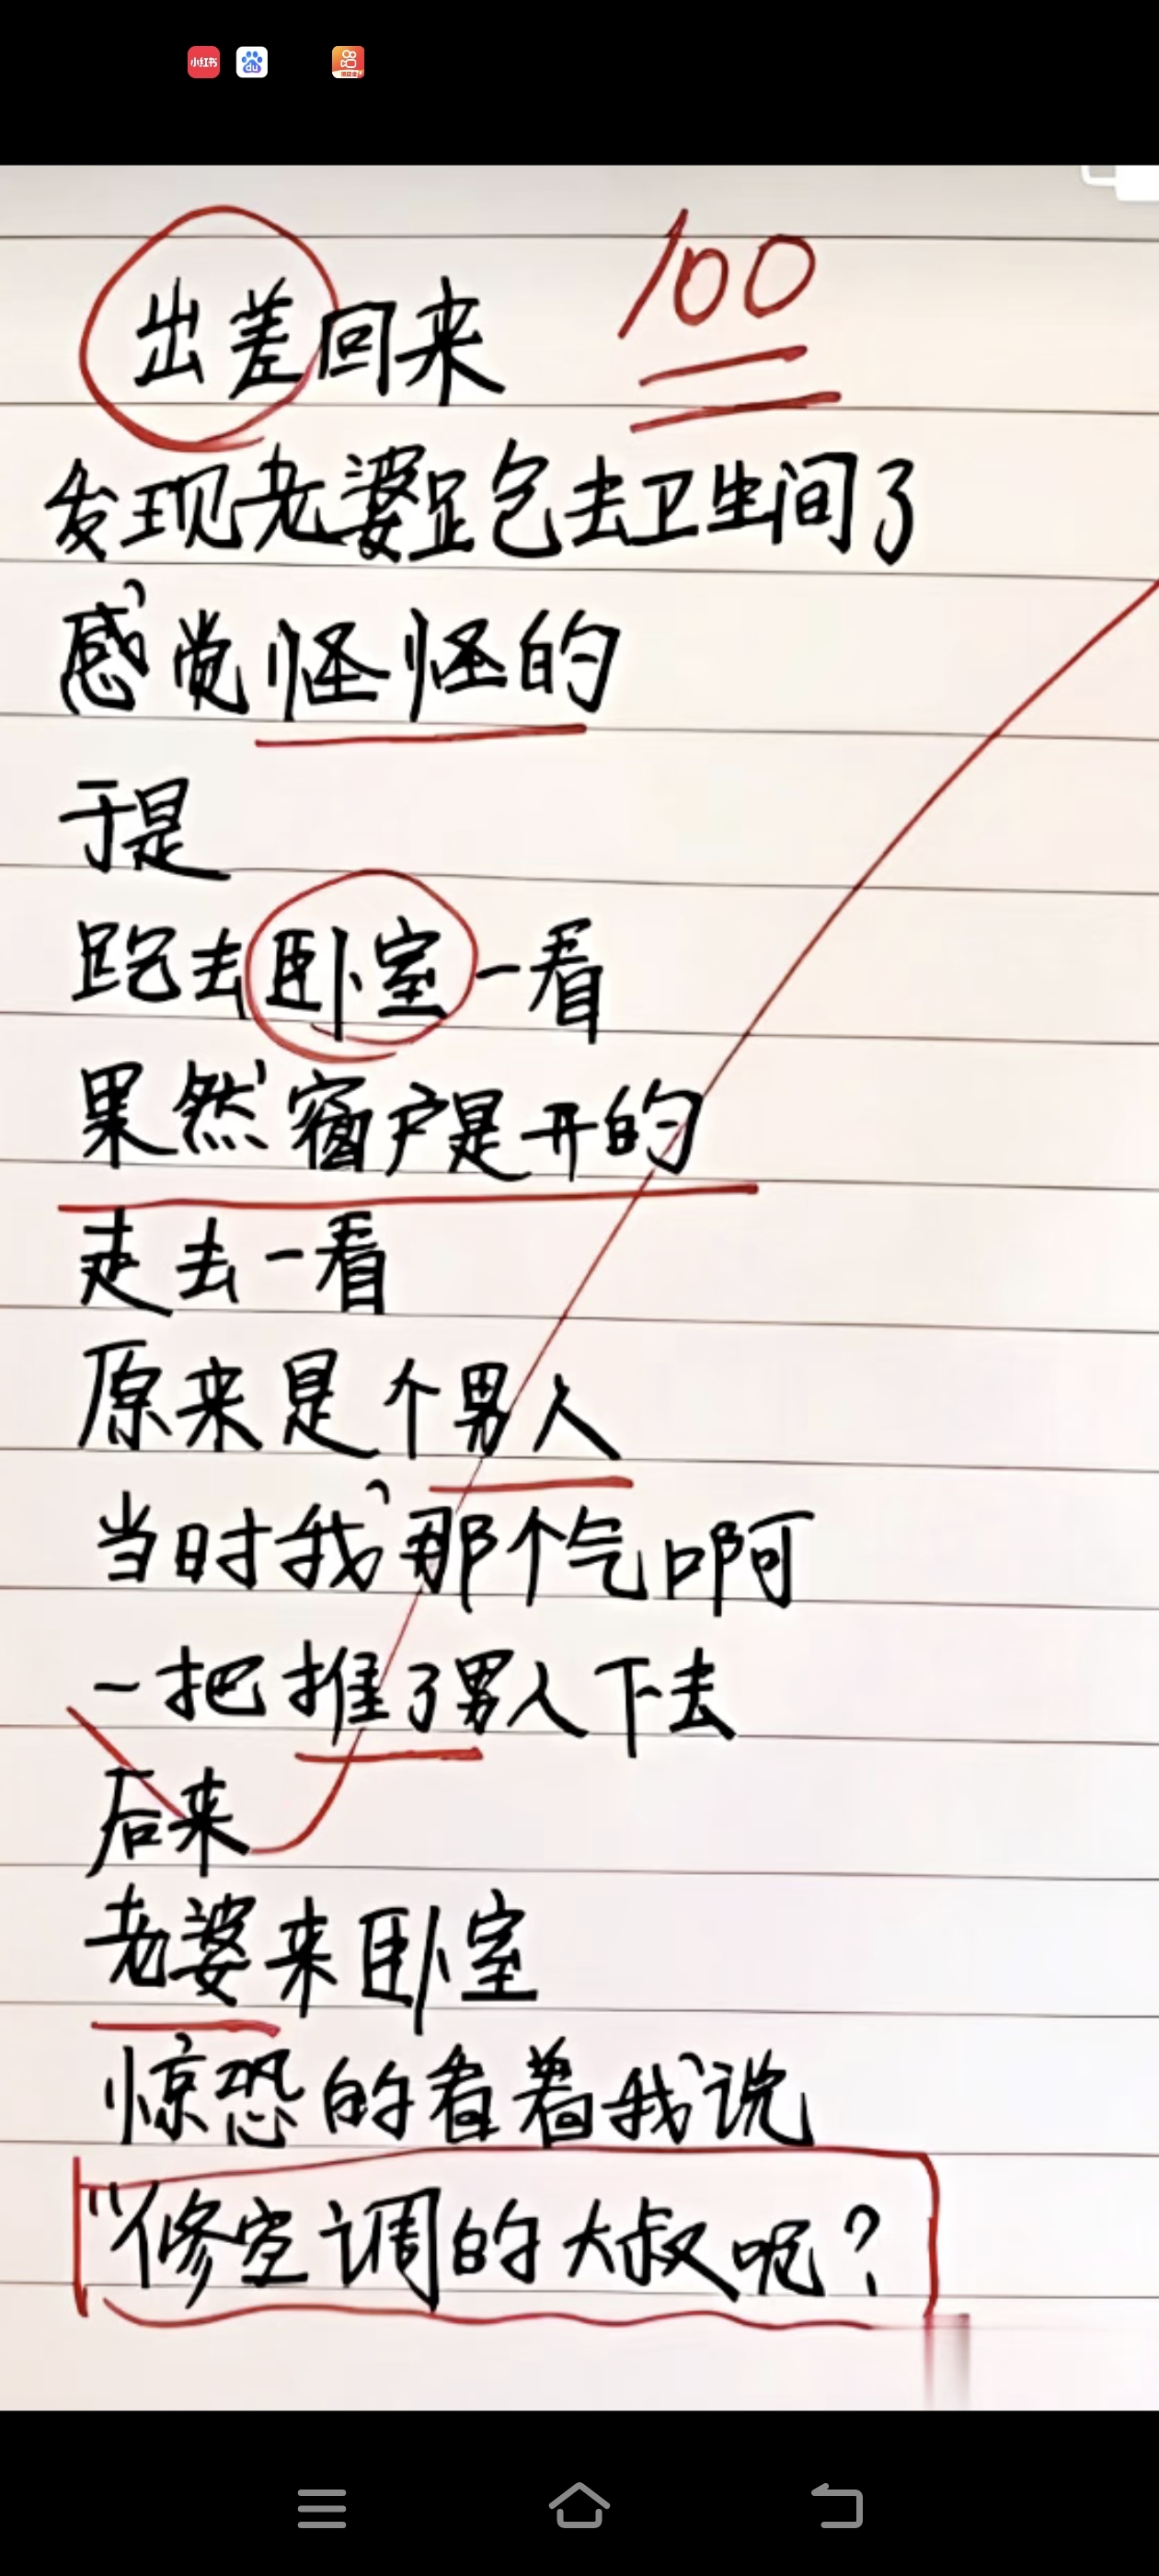 小红书
du
出差回来
100
发现老婆跑去卫生间了
感觉怪怪的
于是
跑去卧室一看
果然窗户是开的
走去一看
原来是个男人
当时我那个气啊
一把推了男人下去
后来
老婆来卧室
惊恐的看着我说
"修空调的大叔呢?